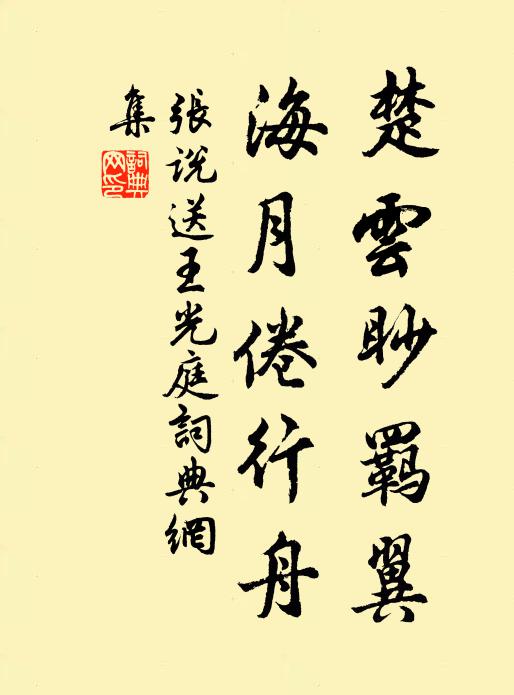 楚雲眇羁翼
海月倦行舟
張說送王光庭詞典網
集
詞典網印